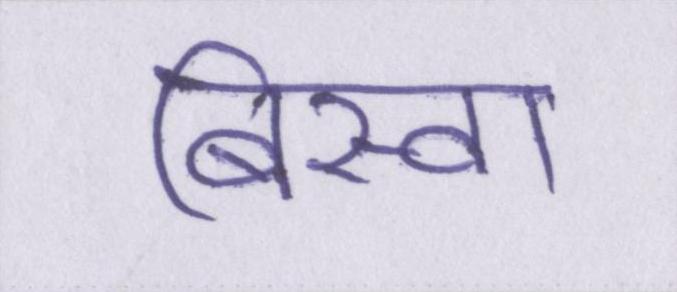 बिस्वा